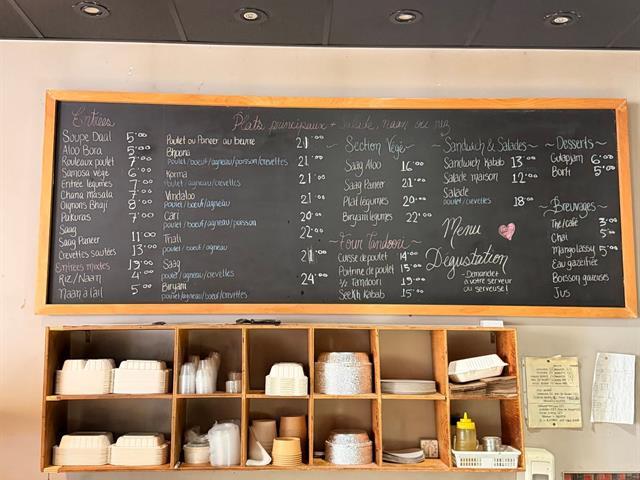 Entrées
Soupe Daal 5.00
Aloo Bora 5.00
Rouleaux poulet 7.00
Samosa végé 6.00
Entrée légumes 7.00
Chana masala 7.00
Oignons Bhaji 8.00
Pakuras 7.00
Saag
Saag Paneer 11.00
Crevettes sautées 13.00
Entrées mixtes 19.00
Riz/Naan 4.00
Naan à l'ail 5.00
Plats principaux + Salade, naan ou riz
Poulet ou Paneer au beurre 21.00
Bhoona
poulet/boeuf/agneau/poisson/crevettes 21.00
Korma
poulet/agneau/crevettes 21.00
Vindaloo
poulet/boeuf/agneau 21.00
Cari
poulet/boeuf/agneau/poisson 22.00
Thali
poulet/boeuf/agneau
Saag
poulet/agneau/crevettes
Biryani 24.00
poulet/agneau/boeuf/crevettes
~ Section Végé ~
Saag Aloo 16.00
Saag Paneer 21.00
Plat légumes 20.00
Biryani légumes 22.00
~ Four Tandoori ~
Cuisse de poulet 14.00
Poitrine de poulet 15.00
1/2 Tandoori 19.00
Seekh Kabab 15.00
~ Sandwich & Salades ~
Sandwich Kabab 13.00
Salade maison 12.00
Salade
poulet/crevettes 18.00
Menu
Dégustation
-Demandez
à votre serveur
ou serveuse!
~ Desserts ~
Gulapjam 6.00
Borfi 5.00
~ Breuvages ~
Thé/café 3.00
Chai
Mango lassy 5.00
Eau gazéifiée
Boisson gazeuses
Jus